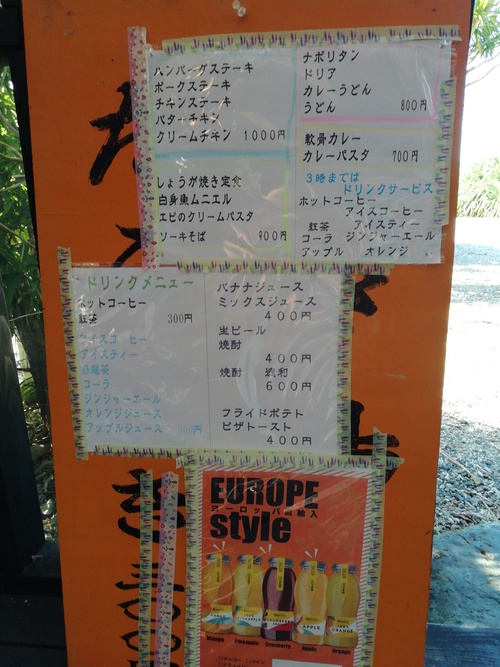 ハンバーグステーキ
ポークステーキ
チキンステーキ
バターチキン
クリームチキン 1000円
しょうが焼き定食
白身魚ムニエル
エビのクリームパスタ
ソーキそば 900円
ナポリタン
ドリア
カレーうどん
うどん 800円
軟骨カレー
カレーパスタ 700円
3時までは
ドリンクサービス
ホットコーヒー
アイスコーヒー
紅茶 アイスティー
コーラ ジンジャーエール
アップル オレンジ
ドリンクメニュー
ホットコーヒー
紅茶 300円
アイスコーヒー
アイスティー
烏龍茶
コーラ
ジンジャーエール
オレンジジュース
アップルジュース 300円
バナナジュース
ミックスジュース
400円
生ビール
焼酎
400円
焼酎
600円
フライドポテト
ピザトースト
400円
EUROPE
ヨーロッパ
輸入
style
Mango Pineapple Cranberry Apple Orange